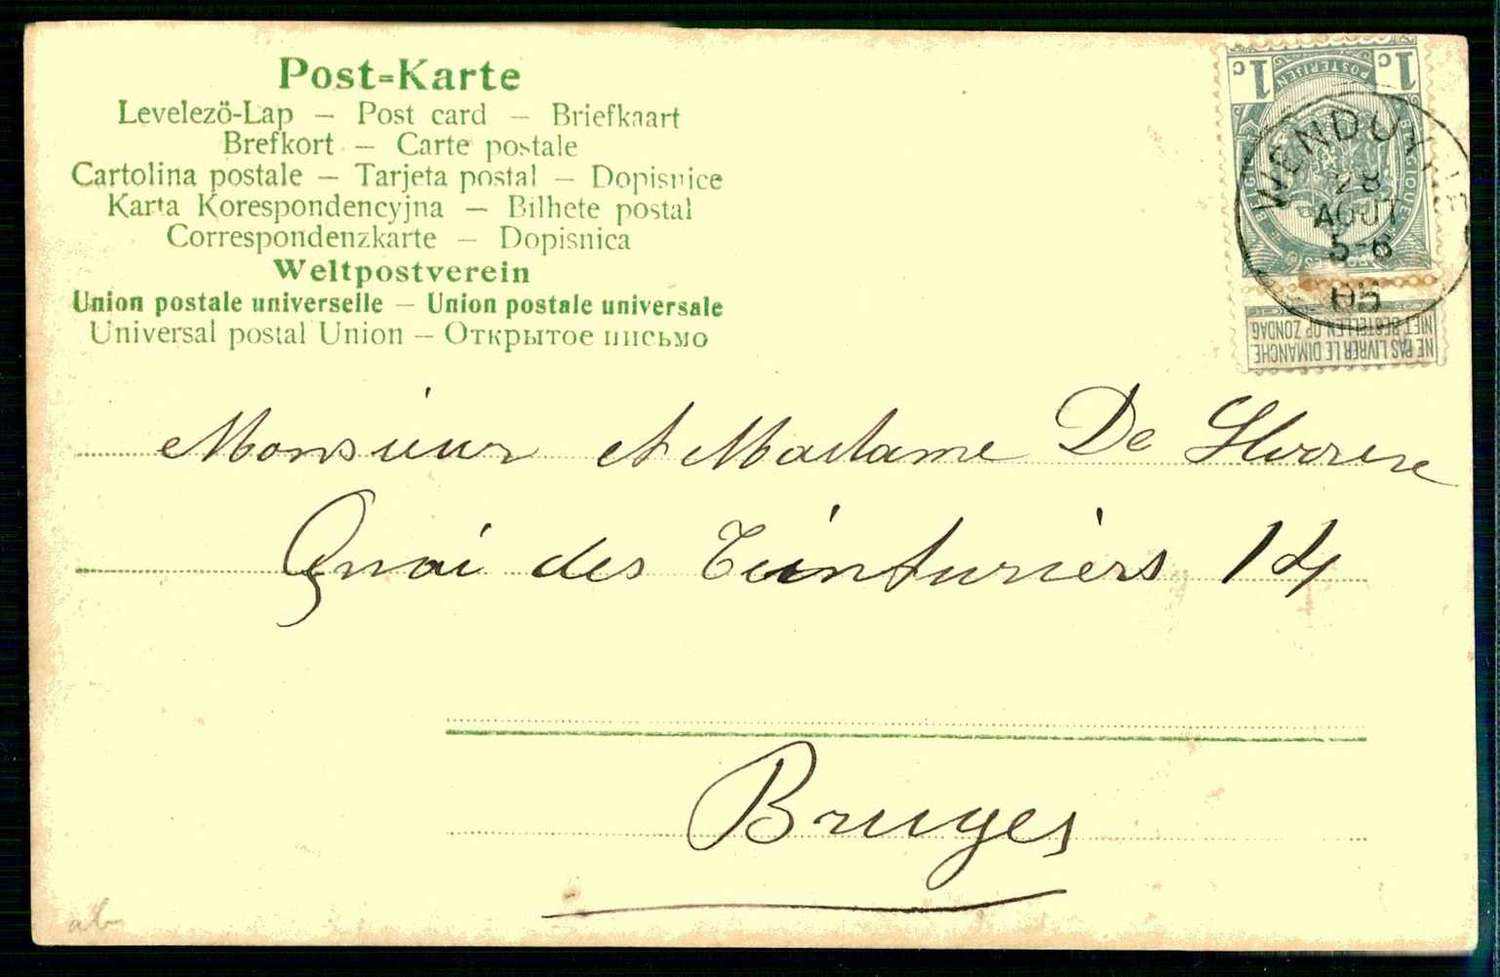 Post-Karte
Levelezö-Lap – Post card – Briefkaart
Brefkort – Carte postale
Cartolina postale – Tarjeta postal – Dopisnice
Karta Korespondencyjna – Bilhete postal
Correspondenzkarte – Dopisnica
Weltpostverein
Union postale universelle – Union postale universale
Universal postal Union – Открытое письмо
1c 1c
POSTERIJEN
BELGIQUE
WENDUYNE
28
AOUT
5-6
05
NE PAS LIVRER LE DIMANCHE
NIET BESTELLEN OP ZONDAG
Monsieur et Madame De
Quai des Teinturiers 14
Bruges
ab